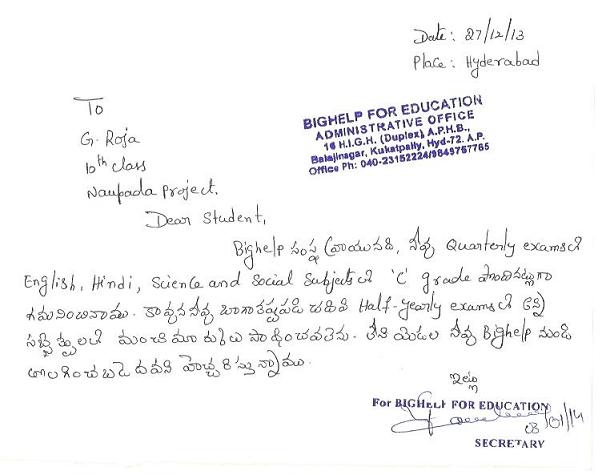 Date: 27/12/13
Place: Hyderabad
To
G. Roja
10th class
Naupada Project.
BIGHELP FOR EDUCATION
ADMINISTRATIVE OFFICE
16 H.I.G.H. (Duplex) A.P.H.B.,
Balajinagar, Kukatpally, Hyd-72. A.P.
Office Ph: 040-23152224/9849767765
Dear Student,
Bighelp సంస్థ వ్రాయునది, నీవు Quarterly examsలో
English, Hindi, Science and Social Subjectsలో 'C' grade పొందినట్లుగా
గమనించినాము. కావున నీవు బాగా కష్టపడి చదివి Half-yearly examsలో అన్ని
సబ్జెక్టులలో మంచి మార్కులు సాధించవలెను. లేని యెడల నీవు Bighelp నుండి
తొలగించబడెదవని హెచ్చరిస్తున్నాము.
ఇట్లు
For BIGHELP FOR EDUCATION
03/01/14
SECRETARY